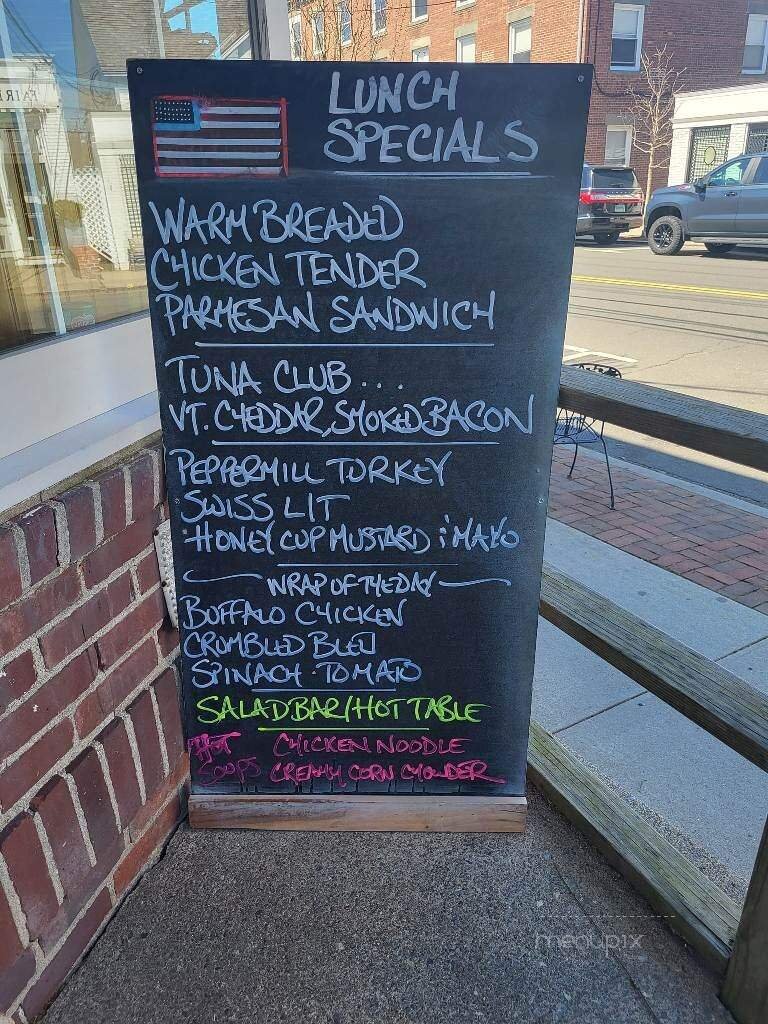 LUNCH
SPECIALS
WARM BREADED
CHICKEN TENDER
PARMESAN SANDWICH
TUNA CLUB...
VT. CHEDDAR, SMOKED BACON
PEPPERMILL TURKEY
SWISS LIT
HONEY CUP MUSTARD & MAYO
WRAP OF THE DAY
BUFFALO CHICKEN
CRUMBLED BLEU
SPINACH · TOMATO
SALAD BAR/HOT TABLE
HOT CHICKEN NOODLE
SOUPS CREAMY CORN CHOWDER
menupix